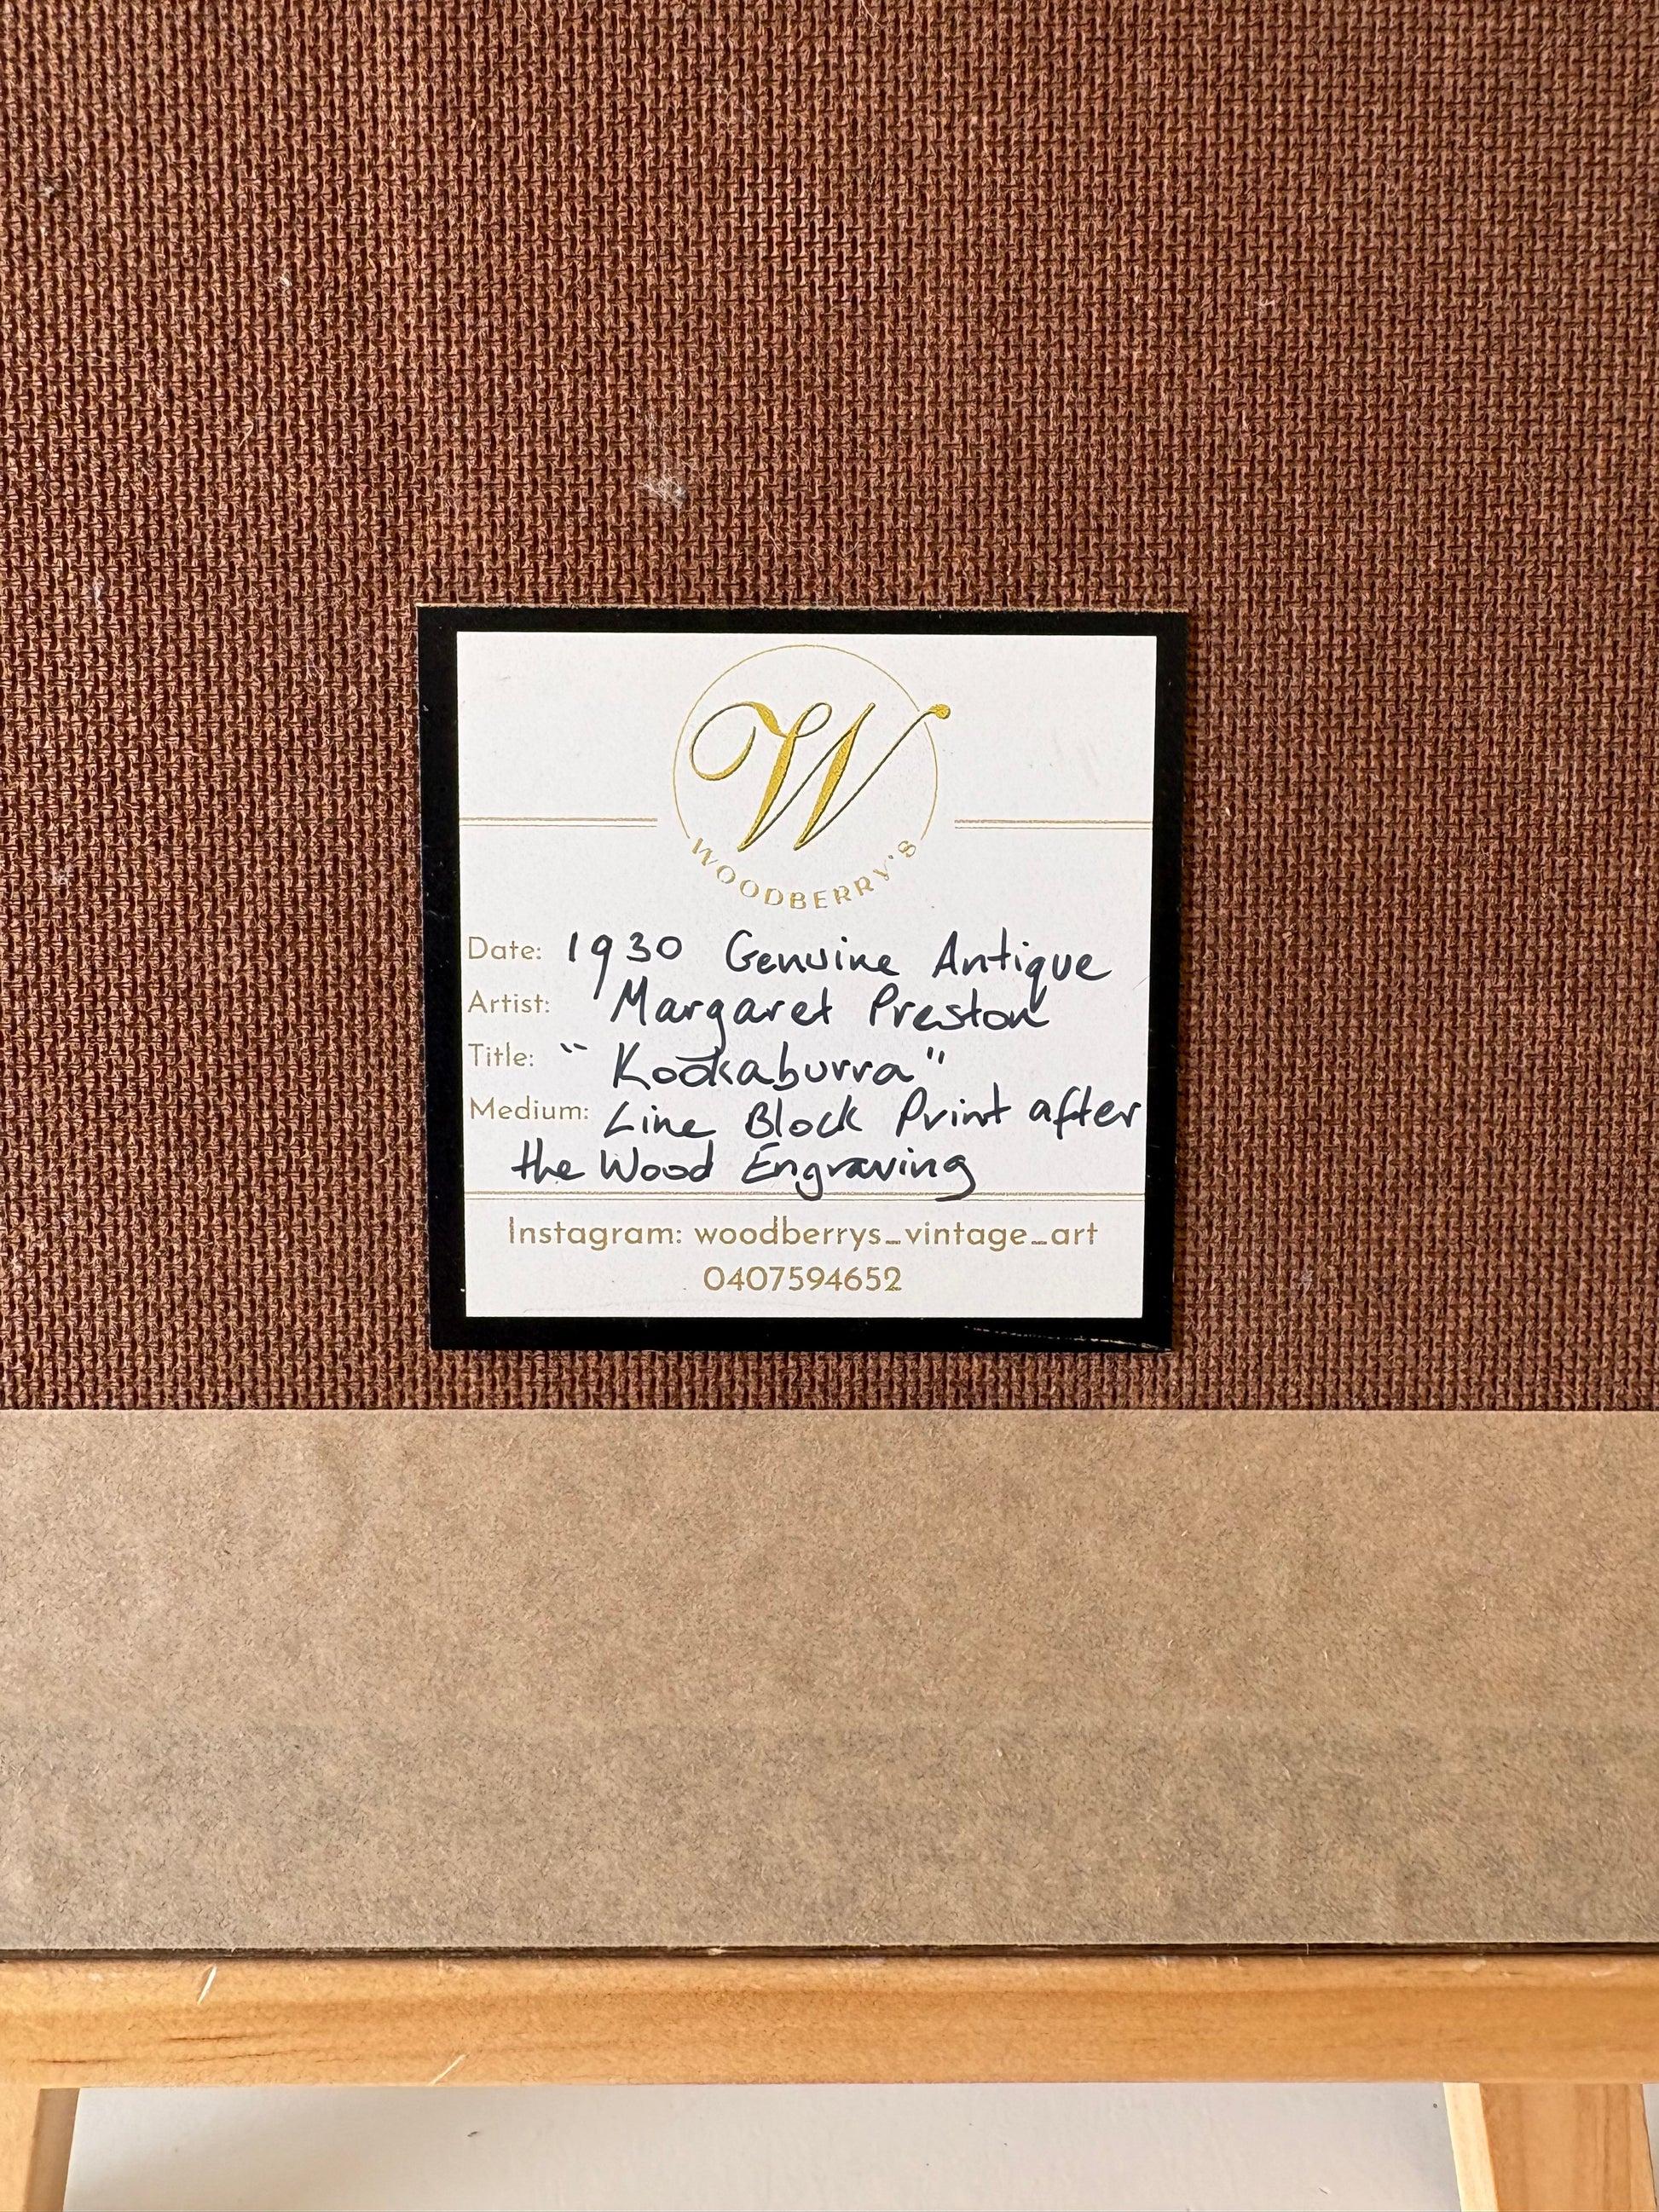 W
WOODBERRY'S
Date: 1930 Genuine Antique
Artist: Margaret Preston
Title: "Kookaburra"
Medium: Line Block Print after
the Wood Engraving
Instagram: woodberrys_vintage_art
0407594652